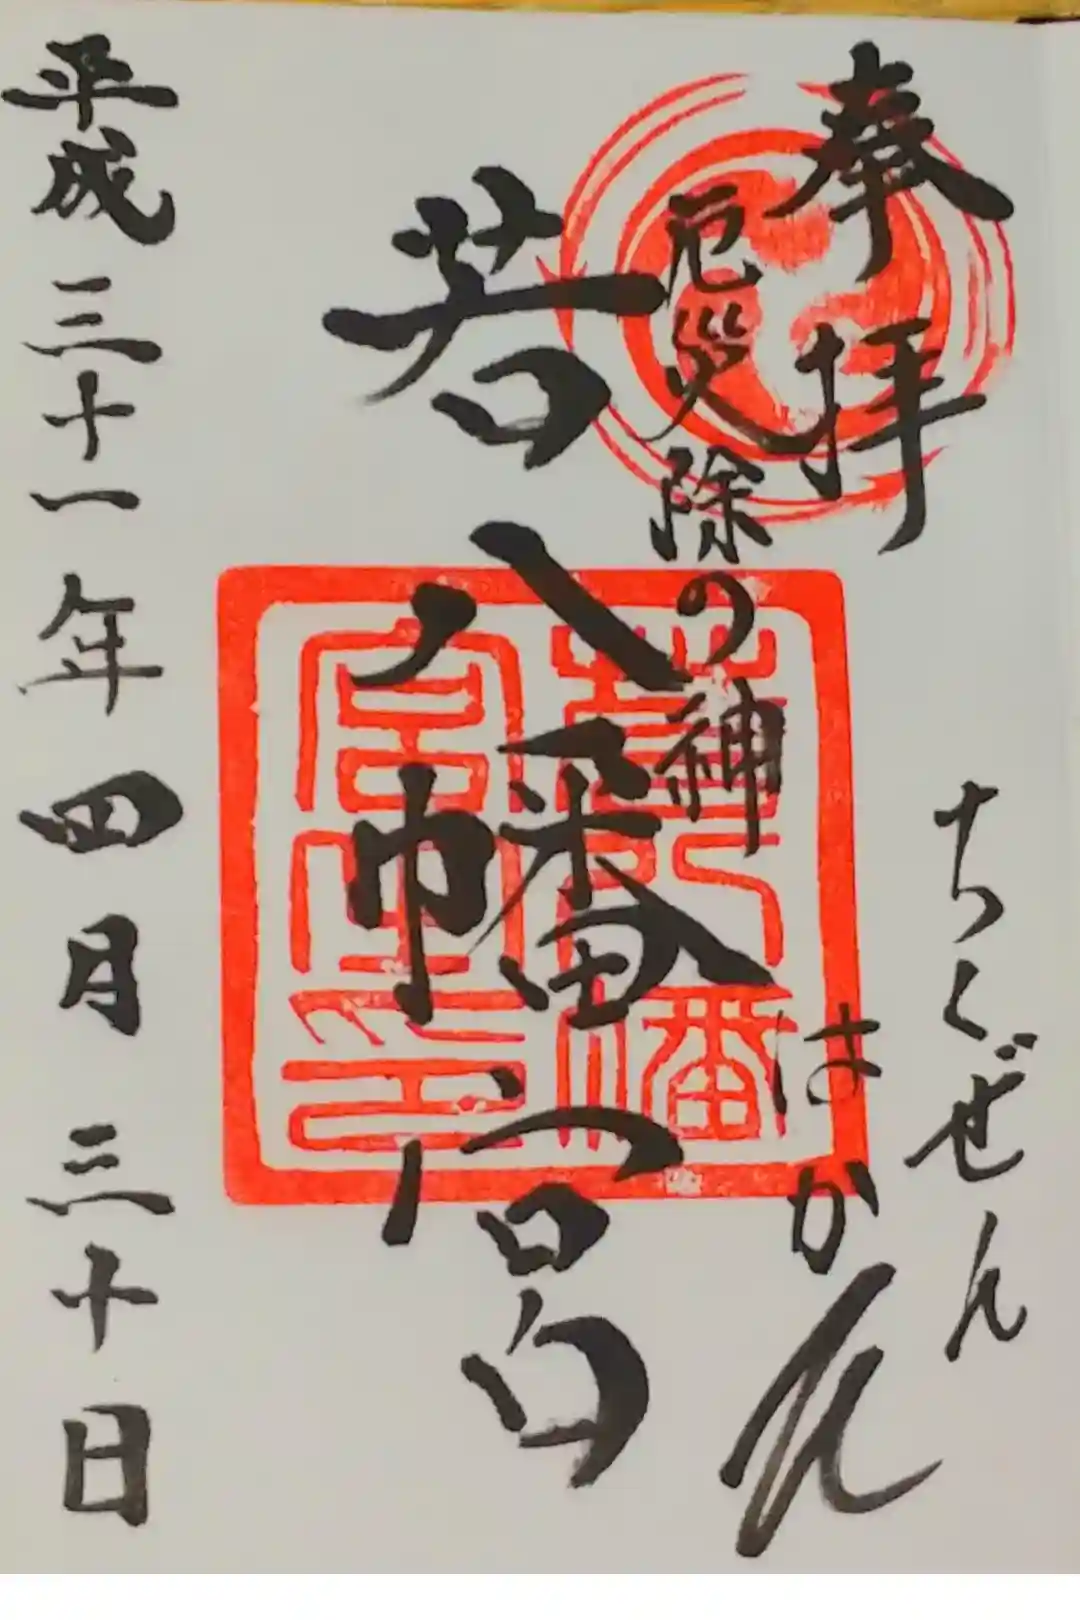 奉拝
ちくぜん
はかた
厄災除の神
若八幡宮
若八幡宮之印
平成三十一年四月三十日